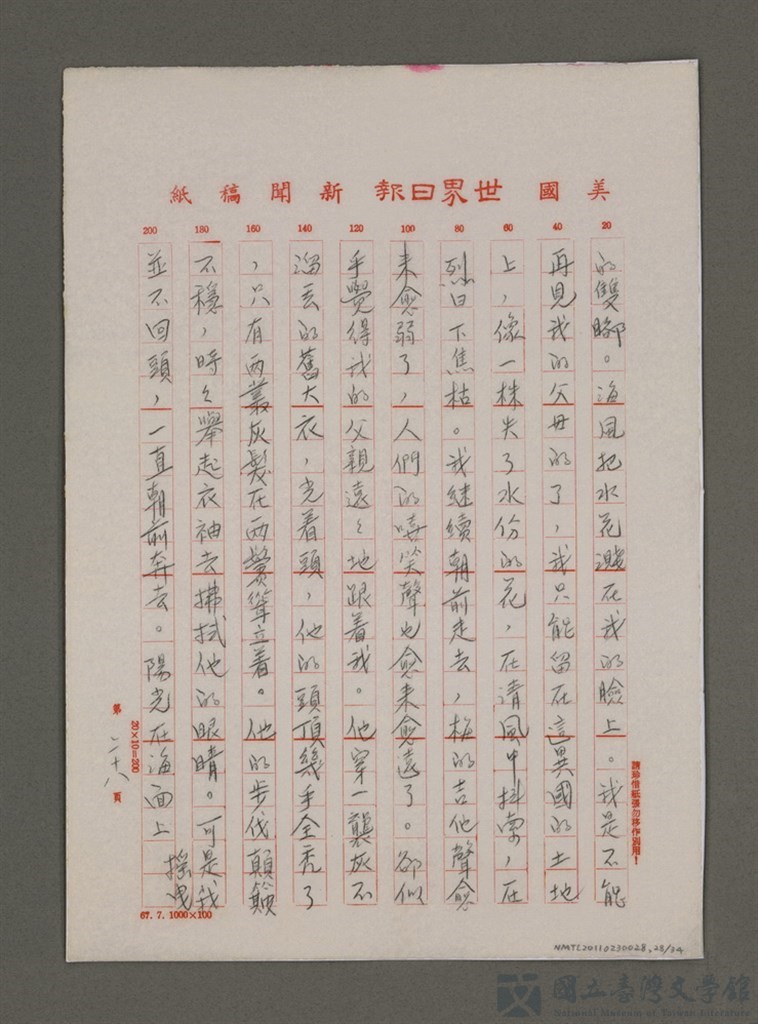 美國世界日報新聞稿紙
20 40 60 80 100 120 140 160 180 200
的雙腳。海風把水花濺在我的臉上。我是不能
再見我的父母的了，我只能留在這異國的土地
上，像一株失了水份的花，在清風中抖索，在
烈日下焦枯。我繼續朝前走去，梅的吉他聲愈
來愈弱了，人們的嘻笑聲也愈來愈遠了。卻似
乎覺得我的父親遠々地跟着我。他穿一襲灰不
溜丟的舊大衣，光着頭，他的頭頂幾乎全禿了
，只有兩叢灰髮在兩鬢聳立着。他的步伐顛簸
不穩，時々舉起衣袖去拂拭他的眼睛。可是我
並不回頭，一直朝前奔去。陽光在海面上搖曳
請珍惜紙張勿移作別用！
20×10=200
第二十八頁
67.7.1000×100
NMTL20110230028,28/34
國立臺灣文學館
National Museum of Taiwan Literature